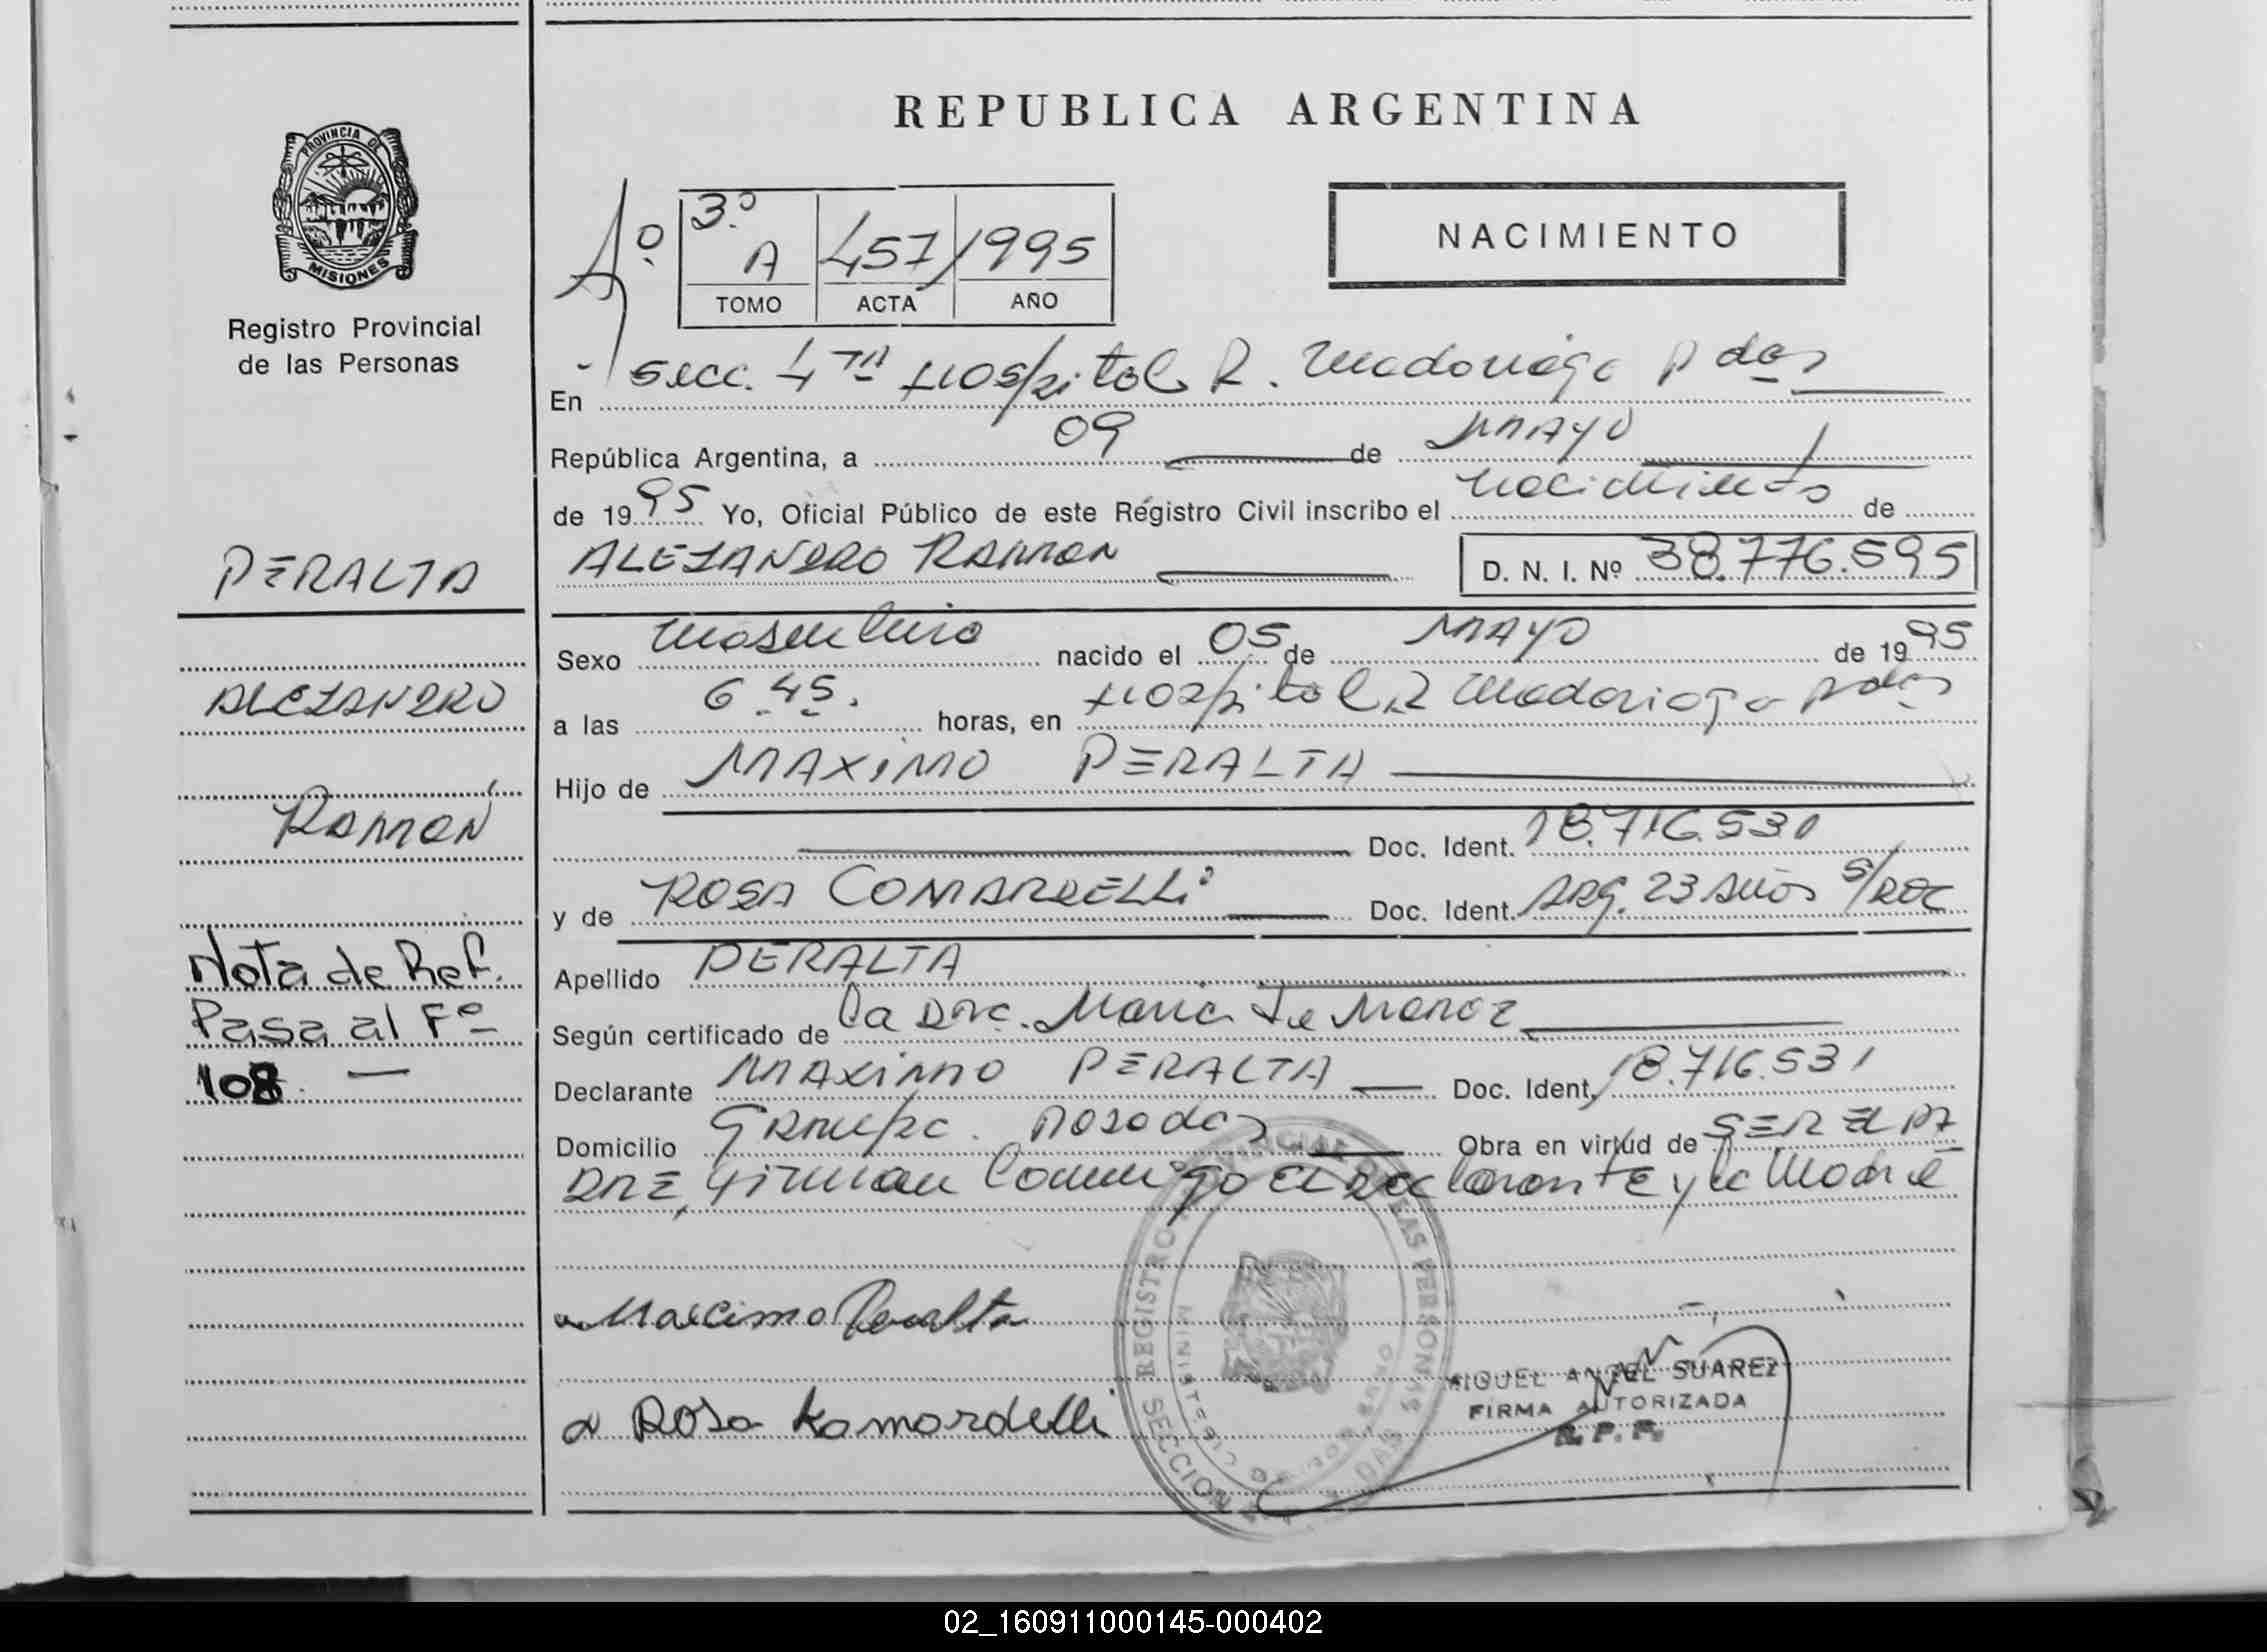 PROVINCIA DE
MISIONES
Registro Provincial
de las Personas
PERALTA
ALEJANDRO
RAMON
Nota de Ref.
Pasa al Fº
108. —
REPUBLICA ARGENTINA
NACIMIENTO
Aº 3º A 457 1995
TOMO ACTA AÑO
En Secc. 4TA Hospital R. Madariaga Pdas
República Argentina, a 09 de MAYO
de 1995 Yo, Oficial Público de este Registro Civil inscribo el nacimiento de
ALEJANDRO RAMON D. N. I. Nº 38.776.595
Sexo masculino nacido el 05 de MAYO de 1995
a las 6.45. horas, en Hospital R Madariaga Pdas
Hijo de MAXIMO PERALTA
Doc. Ident. 18.716.531
y de ROSA COMARDELLI Doc. Ident. ARG. 23 años S/DOC
Apellido PERALTA
Según certificado de la DRA. Maria
Declarante MAXIMO PERALTA Doc. Ident. 18.716.531
Domicilio Posadas Obra en virtud de SER EL PA
DRE, firman conmigo el declarante y la Madre
Maxcimo Peralta
Rosa Komordelli
REGISTRO PROVINCIAL DE LAS PERSONAS
SECCION
MINISTERIO DE GOBIERNO
MIGUEL ANGEL SUAREZ
FIRMA AUTORIZADA
R. P. P.
02_160911000145-000402